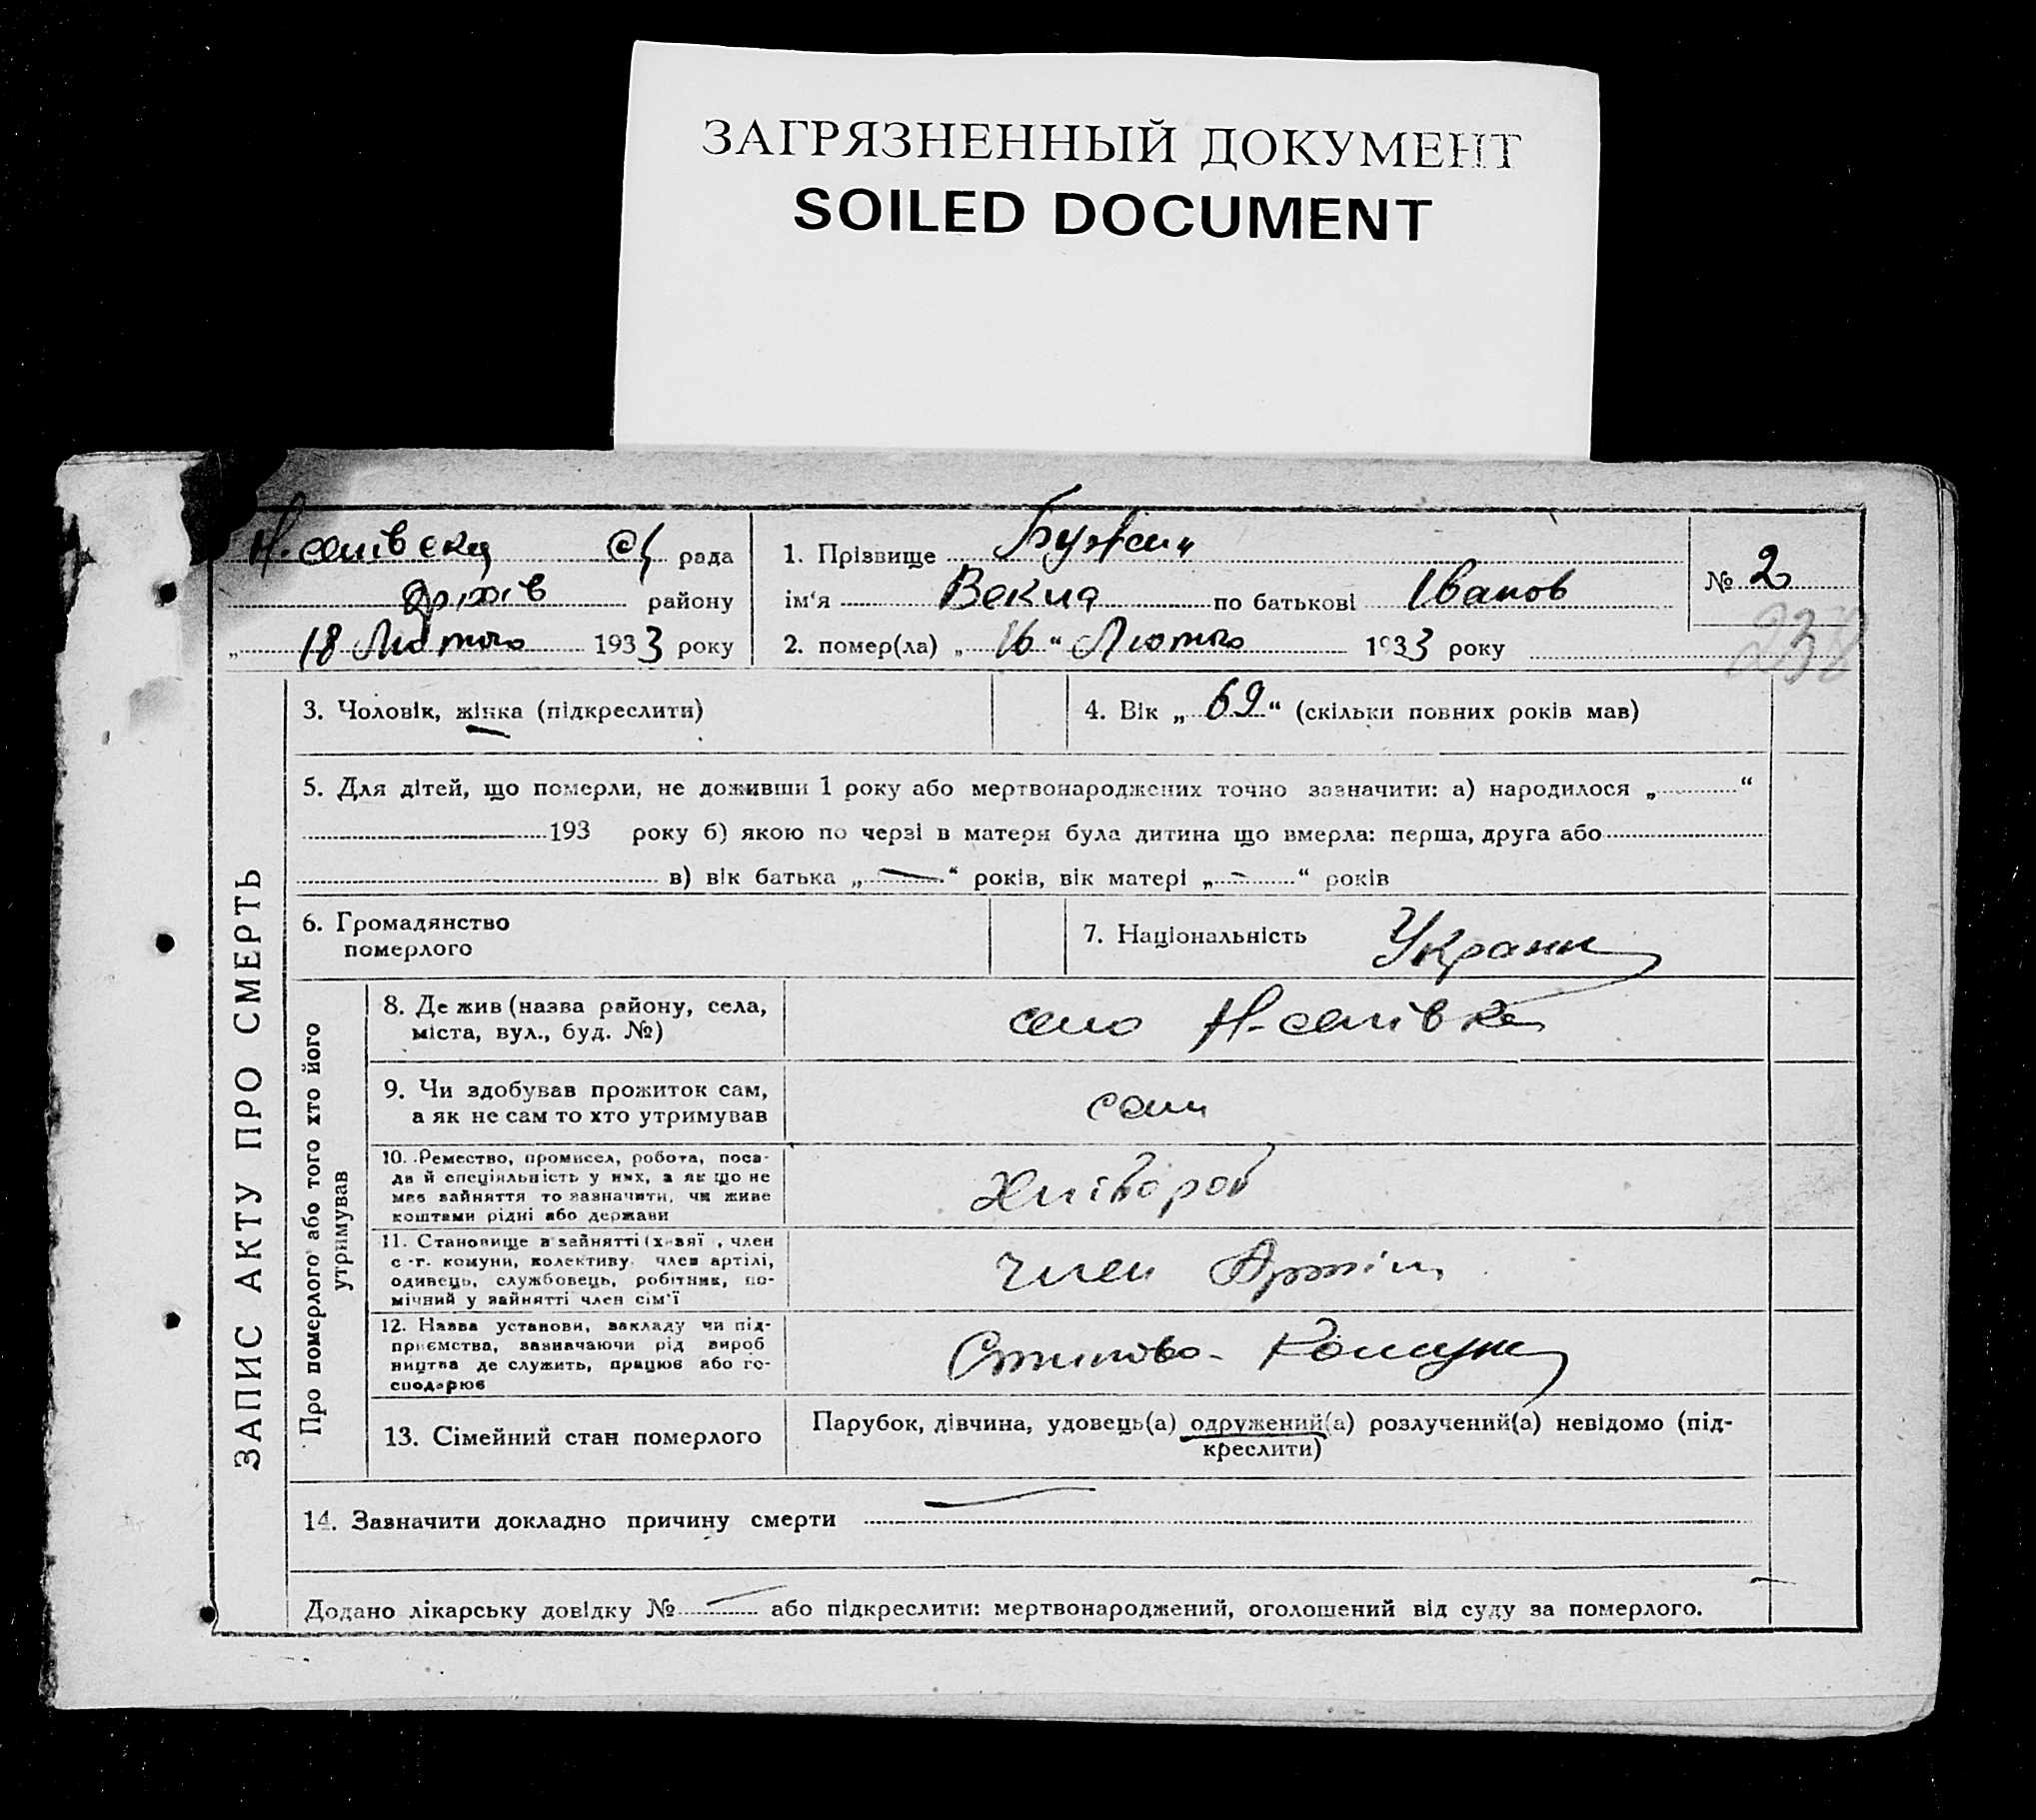 ЗАГРЯЗНЕННЫЙ ДОКУМЕНТ
SOILED DOCUMENT
рада
району
„ 18 Лютого 1933 року
1. Прізвище
ім‘я Векла по батькові Іванов
2. помер(ла) „ 16 “ Лютого 1933 року
№ 2
238
ЗАПИС АКТУ ПРО СМЕРТЬ
3. Чоловік, жінка (підкреслити)
4. Вік „ 69 “ (скільки повних років мав)
5. Для дітей, що померли, не доживши 1 року або мертвонароджених точно зазначити: а) народилося „ “
193 року б) якою по черзі в матери була дитина що вмерла: перша, друга або
в) вік батька „ — “ років, вік матері „ - “ років
6. Громадянство
померлого
7. Національність Украин
Про померлого або того хто його
утримував
8. Де жив (назва району, села,
міста, вул., буд. №)
село Н-селівка
9. Чи здобував прожиток сам,
а як не сам то хто утримував
сам
10. Ремество, промисел, робота, поса-
да й спеціяльність у них, а як що не
має зайняття то зазначити, чи живе
коштами рідні або держави
Хлібороб
11. Становище в зайнятті (х-зяї , член
с -г. комуни, колективу, член артілі,
одивець, службовець, робітник, по-
мічний у зайнятті член сім‘ї
член Артіли
12. Назва установи, закладу чи під-
приємства, зазначаючи рід вироб
ництва де служить, працює або го-
сподарює
13. Сімейний стан померлого
Парубок, дівчина, удовець(а) одружений(а) розлучений(а) невідомо (під-
креслити)
14. Зазначити докладно причину смерти —
Додано лікарську довідку № — або підкреслити: мертвонароджений, оголошений від суду за померлого.